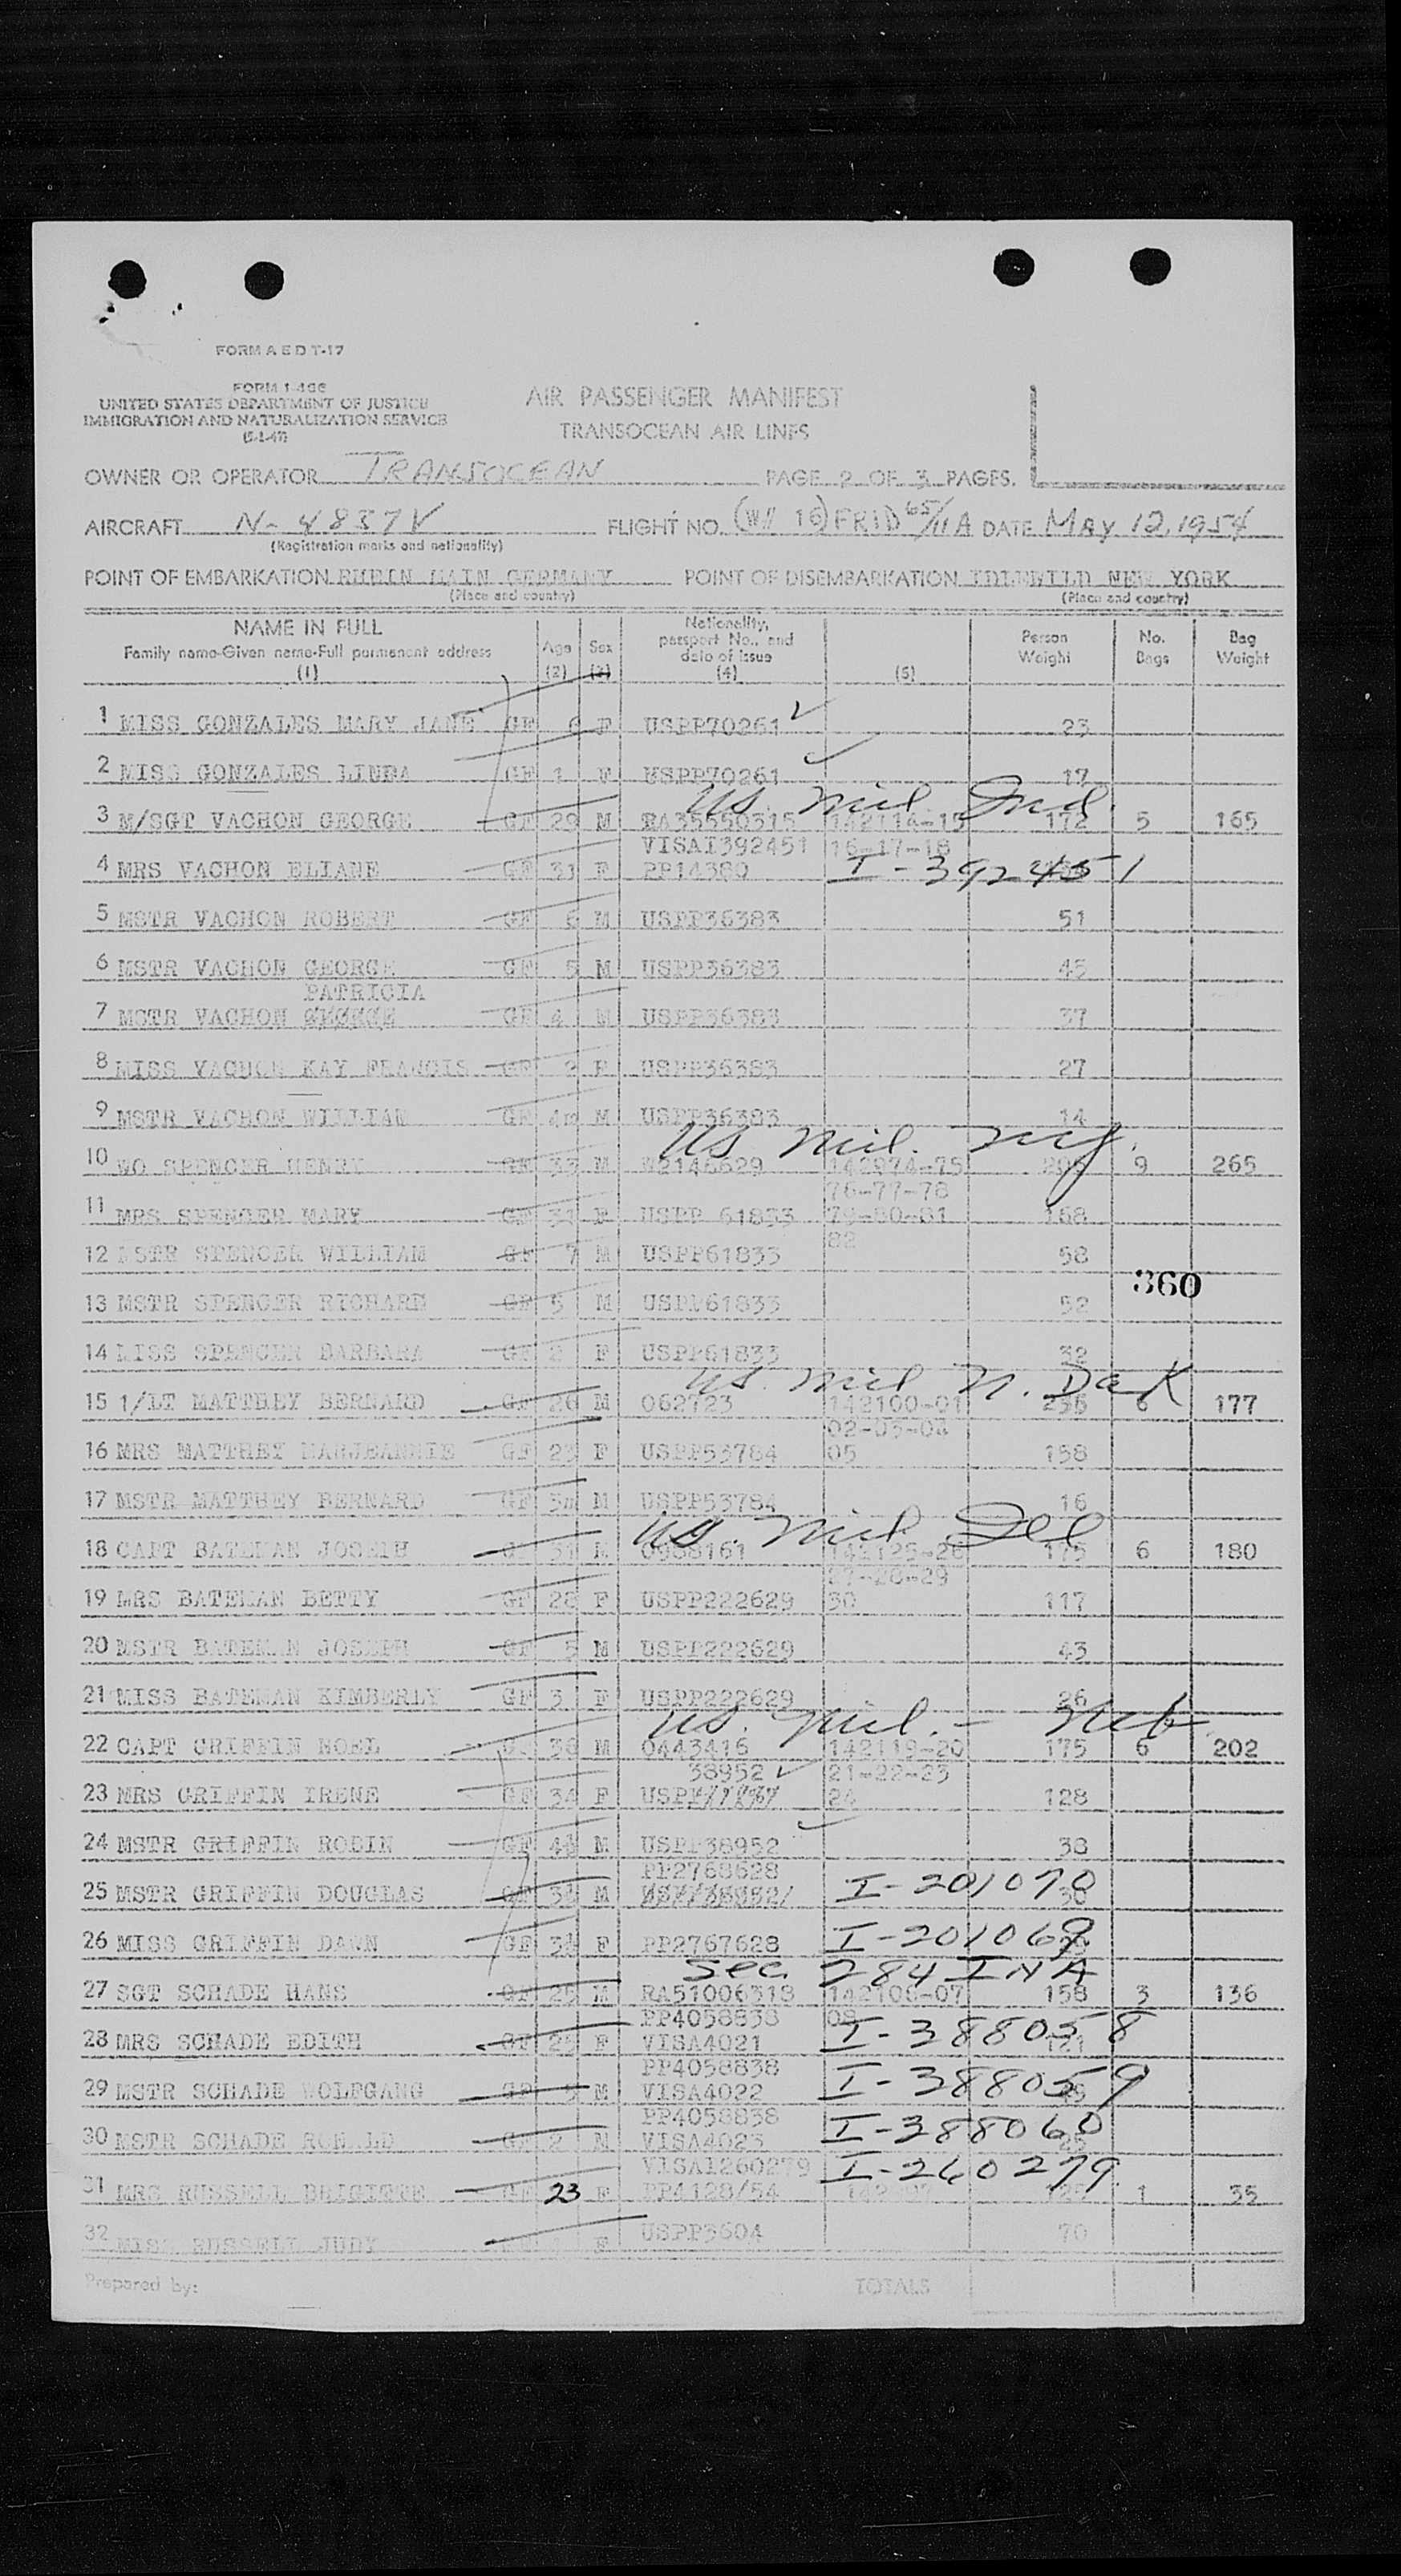 FORM A E D T-17
FORM I-466
UNITED STATES DEPARTMENT OF JUSTICE
IMMIGRATION AND NATURALIZATION SERVICE
(5-1-47)
AIR PASSENGER MANIFEST
TRANSOCEAN AIR LINES
OWNER OR OPERATOR TRANSOCEAN PAGE 2 OF 3 PAGES.
AIRCRAFT N-4837V FLIGHT NO. (W// 16) FRID 65/11A DATE MAY 12, 1954
(Registration marks and nationality)
POINT OF EMBARKATION RHEIN MAIN GERMANY POINT OF DISEMBARKATION IDLEWILD NEW YORK
(Place and country) (Place and country)
NAME IN FULL
Family name-Given name-Full permanent address
(1)
Age
(2)
Sex
(3)
Nationality,
passport No., and
date of issue
(4)
(5)
Person
Weight
No.
Bags
Bag
Weight
1 MISS GONZALES MARY JANE GF 6 F USPP70261 23
2 MISS GONZALES LINDA GF 1 F USPP70261 17
US. Mil. Ind.
3 M/SGT VACHON GEORGE GF 29 M RA35550315 142114-15 172 5 165
VISAI392451 16-17-18
4 MRS VACHON ELIANE GF 31 F PP14380 I-392451
5 MSTR VACHON ROBERT GF 6 M USPP36383 51
6 MSTR VACHON GEORGE GF 5 M USPP36383 45
PATRICIA
7 MSTR VACHON GEORGE GF 4 M USPP36383 37
8 MISS VACHON KAY FRANCIS GF 2 F USPP36383 27
9 MSTR VACHON WILLIAM GF 4m M USPP36383 14
US Mil. NY.
10 WO SPENCER HENRY GF 33 M W2146629 142074-75 9 265
76-77-78
11 MRS SPENCER MARY GF 31 F USPP 61833 79-80-81 168
82
12 MSTR SPENCER WILLIAM GF 7 M USPP61833 58
360
13 MSTR SPENCER RICHARD GF 5 M USPP61833 52
14 MISS SPENCER BARBARA GF 2 F USPP61833 32
US. Mil N. Dak
15 1/LT MATTHEY BERNARD GF 26 M 062723 142100-01 6 177
02-03-04
16 MRS MATTHEY MARJEANNIE GF 23 F USPP53784 05 158
17 MSTR MATTHEY BERNARD GF 3m M USPP53784 16
US. Mil Ill
18 CAPT BATEMAN JOSEPH GF 31 M 0988161 142125-26 175 6 180
27-28-29
19 MRS BATEMAN BETTY GF 28 F USPP222629 30 117
20 MSTR BATEMAN JOSEPH GF 5 M USPP222629 43
21 MISS BATEMAN KIMBERLY GF 3 F USPP222629 26
US. Mil. - Neb
22 CAPT GRIFFIN NOEL GF 36 M 0443416 142119-20 175 6 202
38952 21-22-23
23 MRS GRIFFIN IRENE GF 34 F USPP 24 128
24 MSTR GRIFFIN ROBIN GF 4½ M USPP38952 38
PP2768628
25 MSTR GRIFFIN DOUGLAS GF 3½ M I-201070
26 MISS GRIFFIN DAWN GF 3½ F PP2767628 I-201069
Sec 284 INA
27 SGT SCHADE HANS GF 25 M RA51006318 142106-07 158 3 136
PP4058838 08
28 MRS SCHADE EDITH GF 25 F VISA4021 I-388058 121
PP4058838
29 MSTR SCHADE WOLFGANG GF 5 M VISA4022 I-388059
PP4058838
30 MSTR SCHADE RONALD GF 2 M VISA4023 I-388060
VISAI260279 I-260279
31 MRS RUSSELL BRIGITTE GF 23 F PP4128/54 1 35
32 MISS RUSSELL JUDY F USPP3604 70
Prepared by: TOTALS